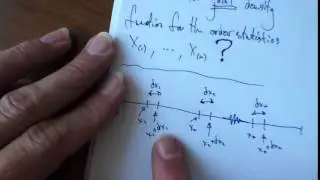 joint density
function for the order statistics
X₍₁₎, ..., X₍ₙ₎ ?
dx₁ dx₂ dxₙ
x₁ x₁+dx₁ x₂ x₂+dx₂ xₙ xₙ+dxₙ